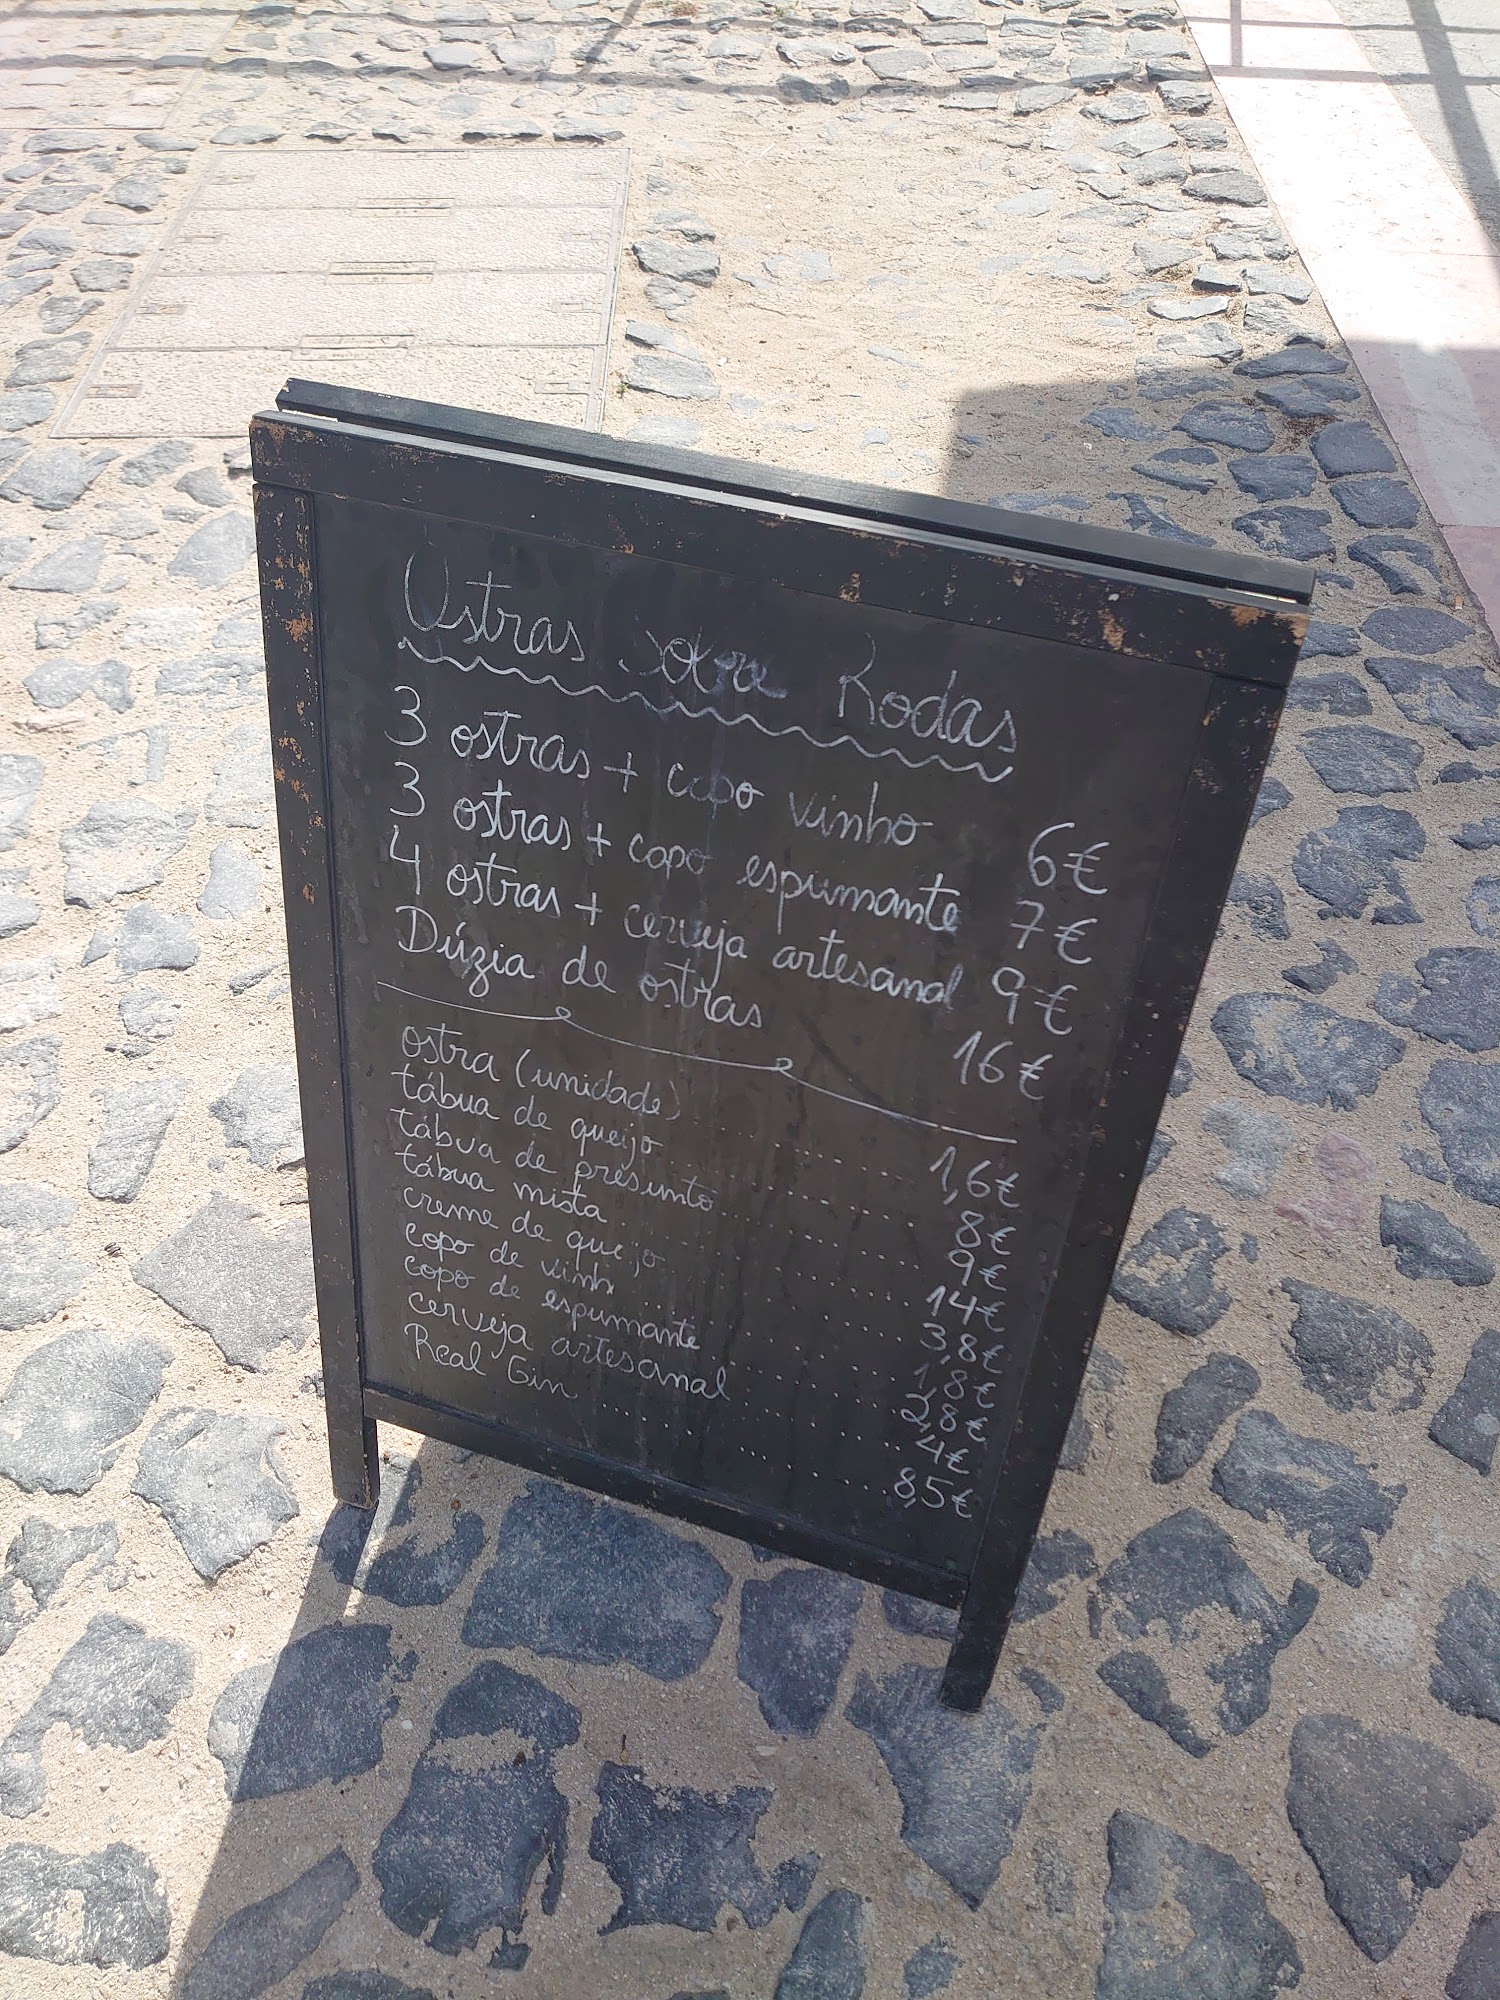 Ostras Sobre Rodas
3 ostras + copo vinho 6€
3 ostras + copo espumante 7€
4 ostras + cerveja artesanal 9€
Dúzia de ostras 16€
ostra (unidade) ........ 1,6€
tábua de queijo ........ 8€
tábua de presunto ........ 9€
tábua mista ........ 14€
creme de queijo ........ 3,8€
copo de vinho ........ 1,8€
copo de espumante ........ 2,8€
cerveja artesanal ........ 4€
Real Gin ........ 8,5€